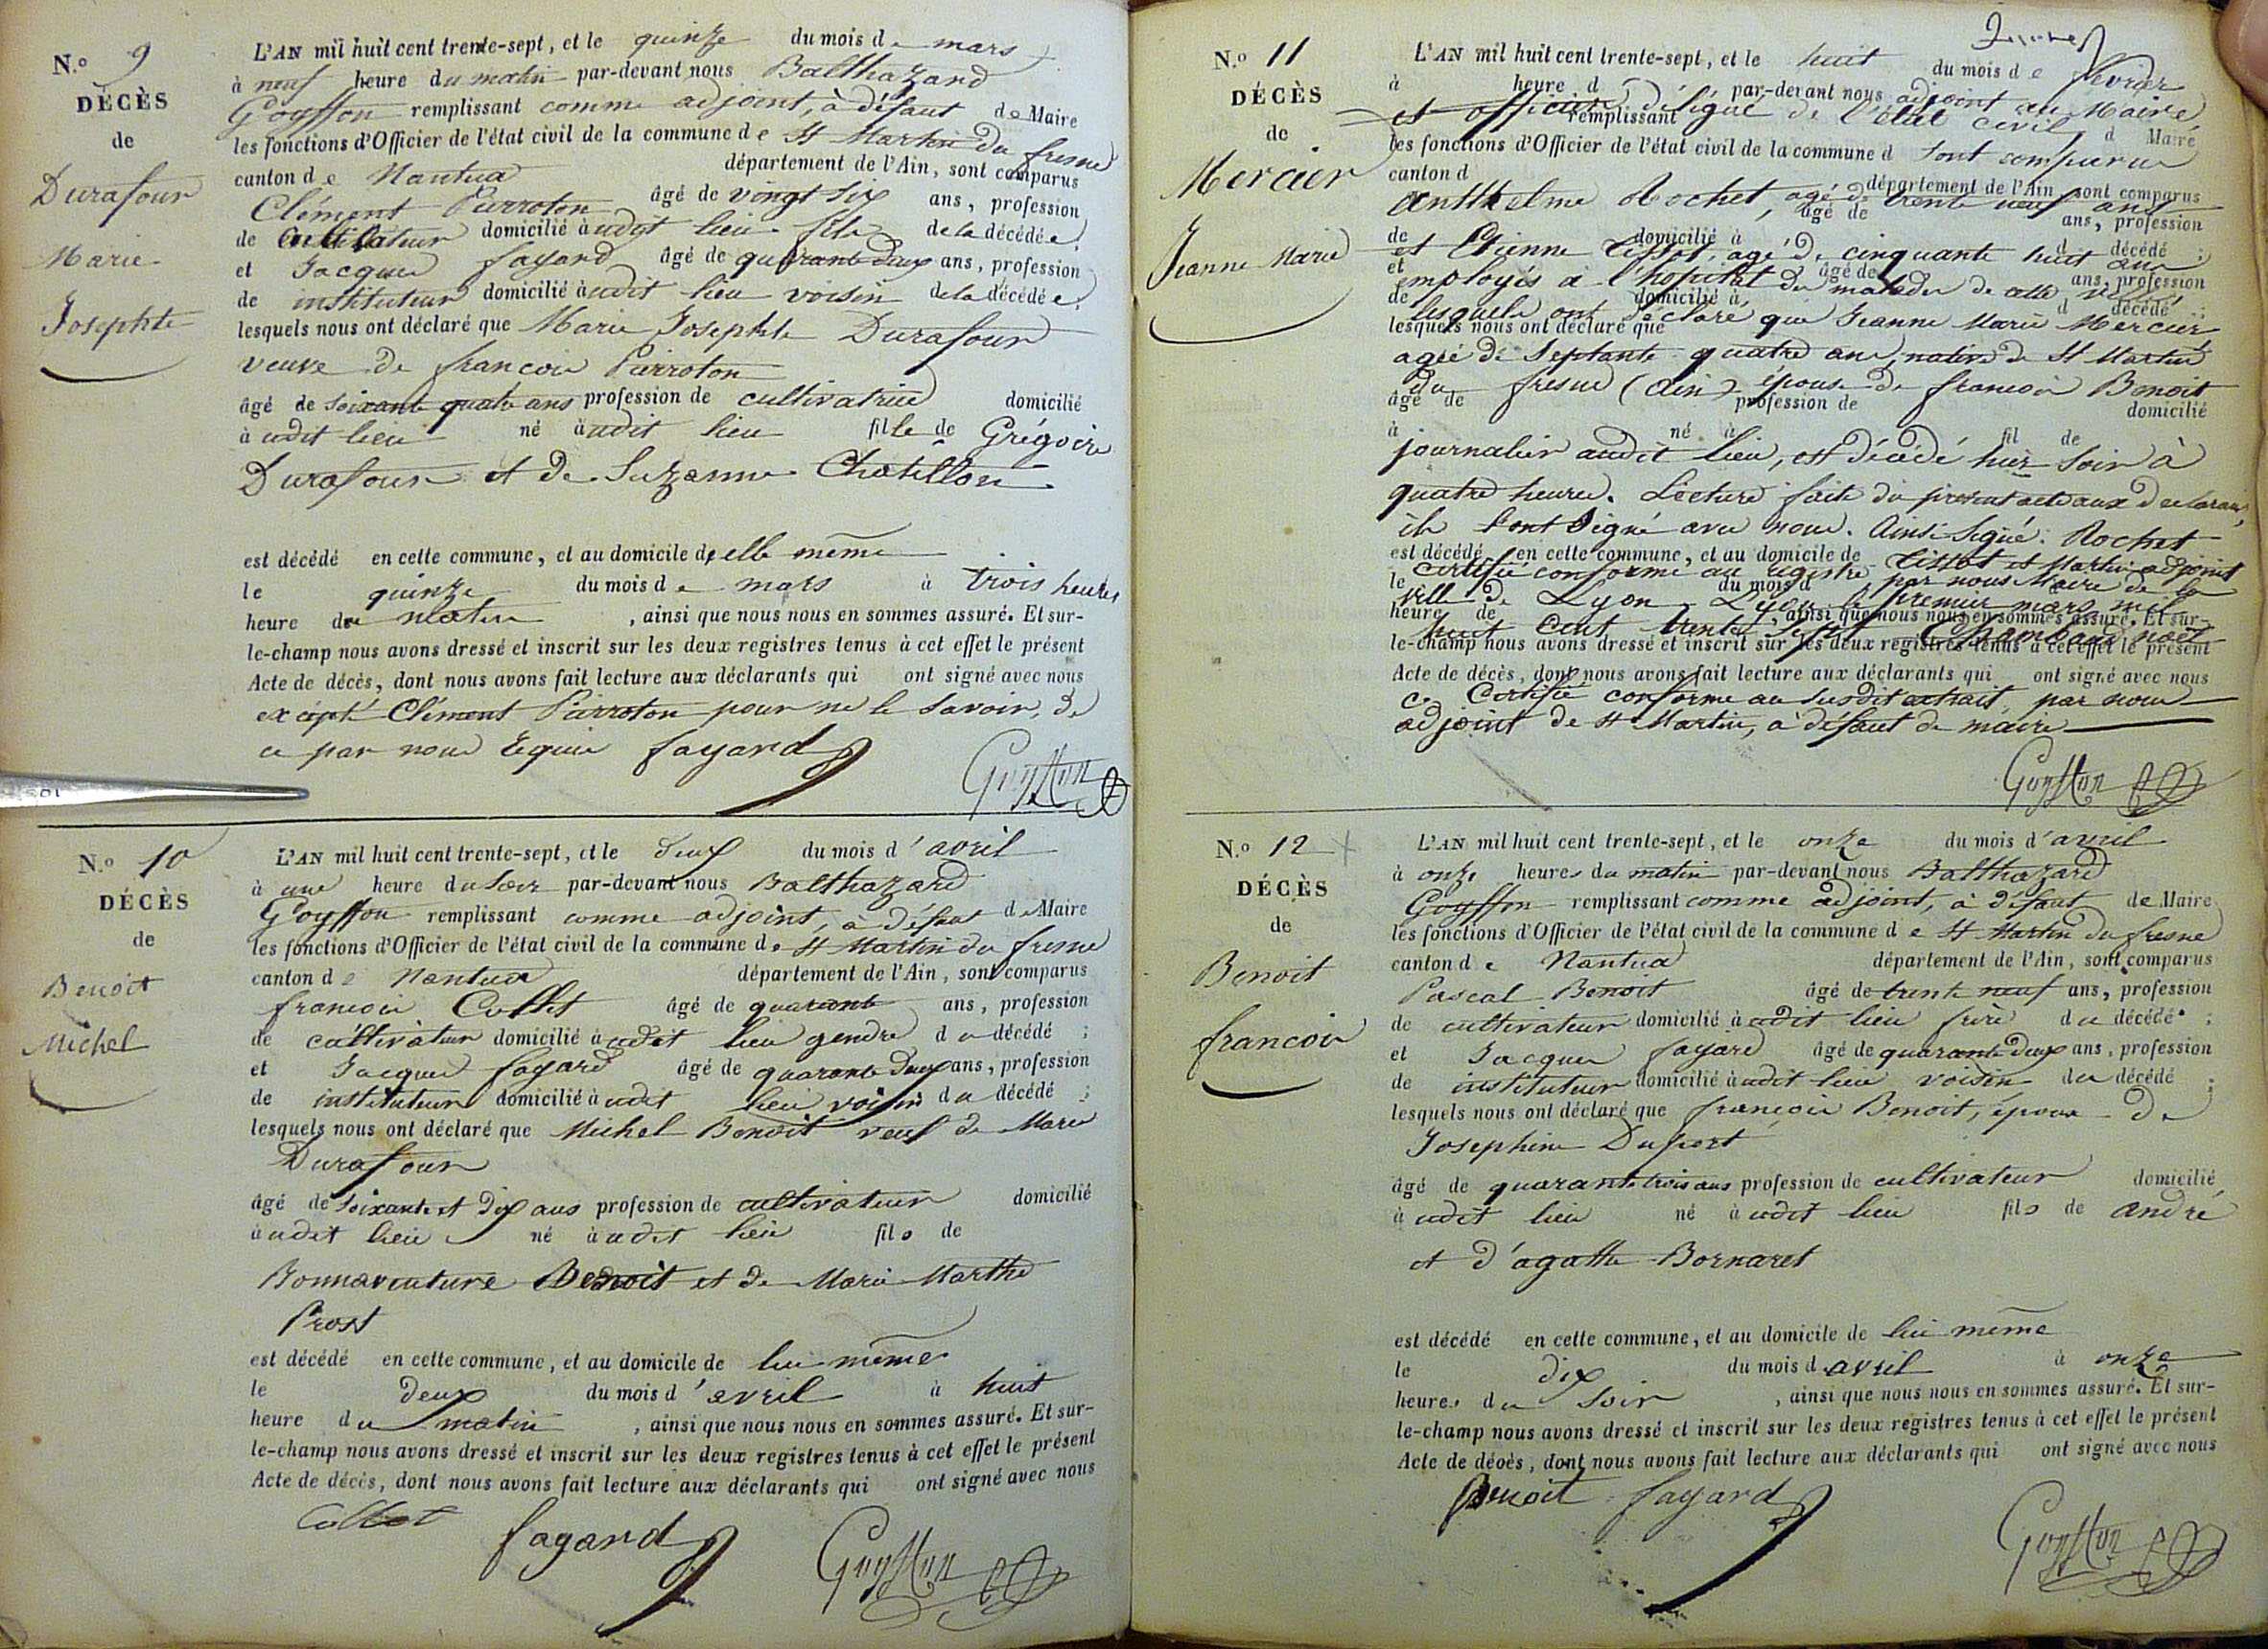 N.° 9
DÉCÈS
de
Durafour
Marie
Josephte
L'AN mil huit cent trente-sept, et le quinze du mois de mars
à neuf heure du matin par-devant nous Balthazard
Goyffon remplissant comme adjoint, à défaut de Maire
les fonctions d'Officier de l'état civil de la commune de St Martin du fresne
canton de Nantua département de l'Ain, sont comparus
Clément Pirroton âgé de vingt six ans, profession
de cultivateur domicilié audit lieu fils de la décédée;
et Jacques fayard âgé de quarante deux ans, profession
de instituteur domicilié audit lieu voisin de la décédée,
lesquels nous ont déclaré que Marie Josephte Durafour
veuve de françois Pirroton
âgé de soixante quatre ans profession de cultivatrice domicilié
à udit lieu né à udit lieu fille de Grégoire
Durafour et de Suzanne Chatillon
est décédé en cette commune, et au domicile de elle même
le quinze du mois de mars à trois heures
heure du matin , ainsi que nous nous en sommes assuré. Et sur-
le-champ nous avons dressé et inscrit sur les deux registres tenus à cet effet le présent
Acte de décès, dont nous avons fait lecture aux déclarants qui ont signé avec nous
excépté Clément Pirroton pour ne le savoir, de
ce par nous Equis fayard
Goyffon
N.° 10
DÉCÈS
de
Benoit
Michel
L'AN mil huit cent trente-sept, et le deux du mois d'avril
à une heure du soir par-devant nous Balthazard
Goyffon remplissant comme adjoint, à défaut de Maire
les fonctions d'Officier de l'état civil de la commune de St Martin du fresne
canton de Nantua département de l'Ain, sont comparus
françois Collet âgé de quarante ans, profession
de cultivateur domicilié à udit lieu gendre du décédé ;
et Jacques fayard âgé de quarante deux ans, profession
de instituteur domicilié à udit lieu voisin du décédé ;
lesquels nous ont déclaré que Michel Benoit veuf de Marie
Durafour
âgé de soixante et dix ans profession de cultivateur domicilié
à udit lieu né à udit lieu fils de
Bonnaventure Benoit et de Marie Marthe
Prost
est décédé en cette commune, et au domicile de lui même
le deux du mois d'avril à huit
heure du matin , ainsi que nous nous en sommes assuré. Et sur-
le-champ nous avons dressé et inscrit sur les deux registres tenus à cet effet le présent
Acte de décès, dont nous avons fait lecture aux déclarants qui ont signé avec nous
Collet fayard Goyffon
N.° 11
DÉCÈS
de
Mercier
Jeanne Marie
L'AN mil huit cent trente-sept, et le huit du mois de fevrier
à heure d par-devant nous adjoint au Maire
et officier délégué de l'état civil
remplissant d Maire
les fonctions d'Officier de l'état civil de la commune d sont comparus
canton d département de l'Ain, sont comparus
Anthelme Rochet, agé de trente neuf ans
âgé de ans, profession
de domicilié à d décédé ;
et Etienne Tissot, agé de cinquante huit ans
et âgé de ans, profession
employés à l'hopital des malades de cette ville
de domicilié à d décédé ;
lesquels ont déclaré que Jeanne Marie Mercier
lesquels nous ont déclaré que
agée de septante quatre ans, native de St Martin
du fresne (Ain) épouse de françois Benoit
âgé de profession de domicilié
à né à fil de
journalier audit lieu, est décédé hier soir à
quatre heures. Lecture faite du present acte aux declarans,
ils l'ont signé avec nous. Ainsi Signé: Rochet
est décédé en cette commune, et au domicile de Tissot et Martin adjoint
certifié conforme au registre par nous Maire de la
le du mois d
ville de Lyon. Lyon le premier mars mil
heure de , ainsi que nous nous en sommes assuré. Et sur-
huit cent trente sept
le-champ nous avons dressé et inscrit sur les deux registres tenus à cet effet le présent
Acte de décès, dont nous avons fait lecture aux déclarants qui ont signé avec nous
Certifié conforme au susdit extrait, par nous
adjoint de St Martin, à défaut de maire
Goyffon
N.° 12
DÉCÈS
de
Benoit
francois
L'AN mil huit cent trente-sept, et le onze du mois d'avril
à onze heures du matin par-devant nous Balthazard
Goyffon remplissant comme adjoint, à défaut de Maire
les fonctions d'Officier de l'état civil de la commune de St Martin du fresne
canton de Nantua département de l'Ain, sont comparus
Pascal Benoit âgé de trente neuf ans, profession
de cultivateur domicilié à udit lieu frère du décédé ;
et Jacques fayard âgé de quarante deux ans, profession
de instituteur domicilié à udit lieu voisin du décédé ;
lesquels nous ont déclaré que françois Benoit, époux de
Josephine Dufort
âgé de quarante trois ans profession de cultivateur domicilié
à udit lieu né à udit lieu fils de andré
et d'agathe Bornaret
est décédé en cette commune, et au domicile de lui même
le dix du mois d avril à onze
heures du soir , ainsi que nous nous en sommes assuré. Et sur-
le-champ nous avons dressé et inscrit sur les deux registres tenus à cet effet le présent
Acte de décès, dont nous avons fait lecture aux déclarants qui ont signé avec nous
Benoit fayard
Goyffon